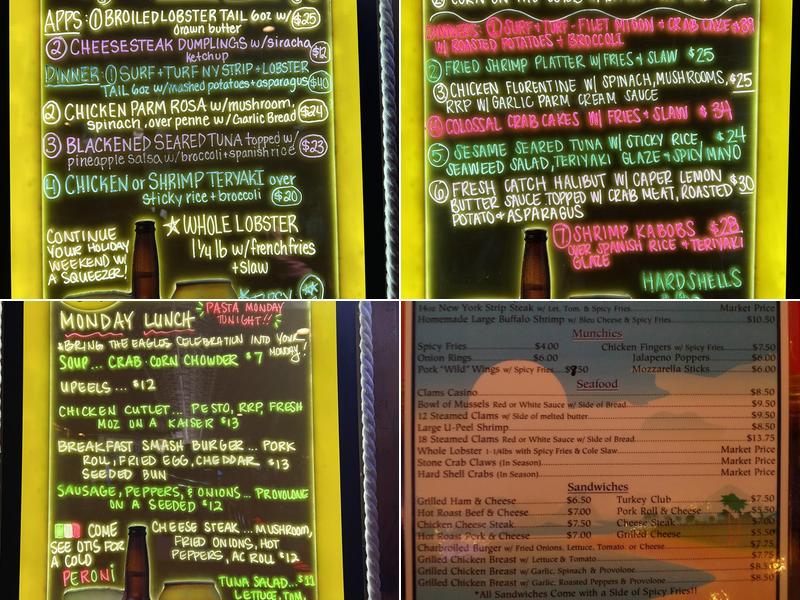 APPS: ① BROILED LOBSTER TAIL 6oz w/ $25
drawn butter
② CHEESESTEAK DUMPLINGS w/siracha $12
ketchup
DINNER: ① SURF+TURF NY STRIP + LOBSTER
TAIL 6oz w/mashed potatoes+asparagus $40
② CHICKEN PARM ROSA w/mushroom, $24
spinach, over penne w/Garlic Bread
③ BLACKENED SEARED TUNA topped w/ $23
pineapple salsa w/broccoli+spanish rice
④ CHICKEN or SHRIMP TERYAKI over
sticky rice + broccoli $20
CONTINUE
YOUR HOLIDAY
WEEKEND W/
A SQUEEZER!
★ WHOLE LOBSTER
1 1/4 lb w/french fries
+slaw
① SURF + TURF - FILET MIGNON + CRAB CAKE
W/ ROASTED POTATOES + BROCCOLI
② FRIED SHRIMP PLATTER W/ FRIES + SLAW $25
③ CHICKEN FLORENTINE W/ SPINACH, MUSHROOMS, $25
RRP W/ GARLIC PARM CREAM SAUCE
④ COLOSSAL CRAB CAKES W/ FRIES + SLAW $34
⑤ SESAME SEARED TUNA W/ STICKY RICE, $24
SEAWEED SALAD, TERIYAKI GLAZE + SPICY MAYO
⑥ FRESH CATCH HALIBUT W/ CAPER LEMON $30
BUTTER SAUCE TOPPED W/ CRAB MEAT, ROASTED
POTATO + ASPARAGUS
⑦ SHRIMP KABOBS $23
OVER SPANISH RICE + TERIYAKI
GLAZE
HARDSHELLS
MONDAY LUNCH
PASTA MONDAY
TONIGHT!!
*BRING THE EAGLES CELEBRATION INTO YOUR
MONDAY!
SOUP... CRAB CORN CHOWDER $7
UPEELS... $12
CHICKEN CUTLET... PESTO, RRP, FRESH
MOZ ON A KAISER $13
BREAKFAST SMASH BURGER... PORK
ROLL, FRIED EGG, CHEDDAR $13
SEEDED BUN
SAUSAGE, PEPPERS, & ONIONS... PROVOLONE
ON A SEEDED $12
COME
SEE OTIS FOR
A COLD
PERONI
CHEESE STEAK... MUSHROOM,
FRIED ONIONS, HOT
PEPPERS, AC ROLL $12
TUNA SALAD...$11
LETTUCE, TOM,
14oz New York Strip Steak w/ Let, Tom, & Spicy Fries Market Price
Homemade Large Buffalo Shrimp w/ Bleu Cheese & Spicy Fries $10.50
Munchies
Spicy Fries $4.00
Onion Rings $6.00
Pork "Wild" Wings w/ Spicy Fries
Chicken Fingers w/ Spicy Fries $7.50
Jalapeno Poppers $6.00
Mozzarella Sticks $6.00
Seafood
Clams Casino $8.50
Bowl of Mussels Red or White Sauce w/ Side of Bread $9.50
12 Steamed Clams w/ Side of melted butter $9.50
Large U-Peel Shrimp $8.50
18 Steamed Clams Red or White Sauce w/ Side of Bread $13.75
Whole Lobster 1-1/4lbs with Spicy Fries & Cole Slaw Market Price
Stone Crab Claws (In Season) Market Price
Hard Shell Crabs (In Season) Market Price
Sandwiches
Grilled Ham & Cheese $6.50
Hot Roast Beef & Cheese $7.00
Chicken Cheese Steak $7.50
Hot Roast Pork & Cheese $7.00
Turkey Club $7.50
Pork Roll & Cheese $5.50
Cheese Steak $7.00
Grilled Cheese $5.50
Charbroiled Burger w/ Fried Onions, Lettuce, Tomato, or Cheese $7.75
Grilled Chicken Breast w/ Lettuce & Tomato $7.75
Grilled Chicken Breast w/ Garlic, Spinach & Provolone $8.50
Grilled Chicken Breast w/ Garlic, Roasted Peppers & Provolone $8.50
*All Sandwiches Come with a Side of Spicy Fries!!